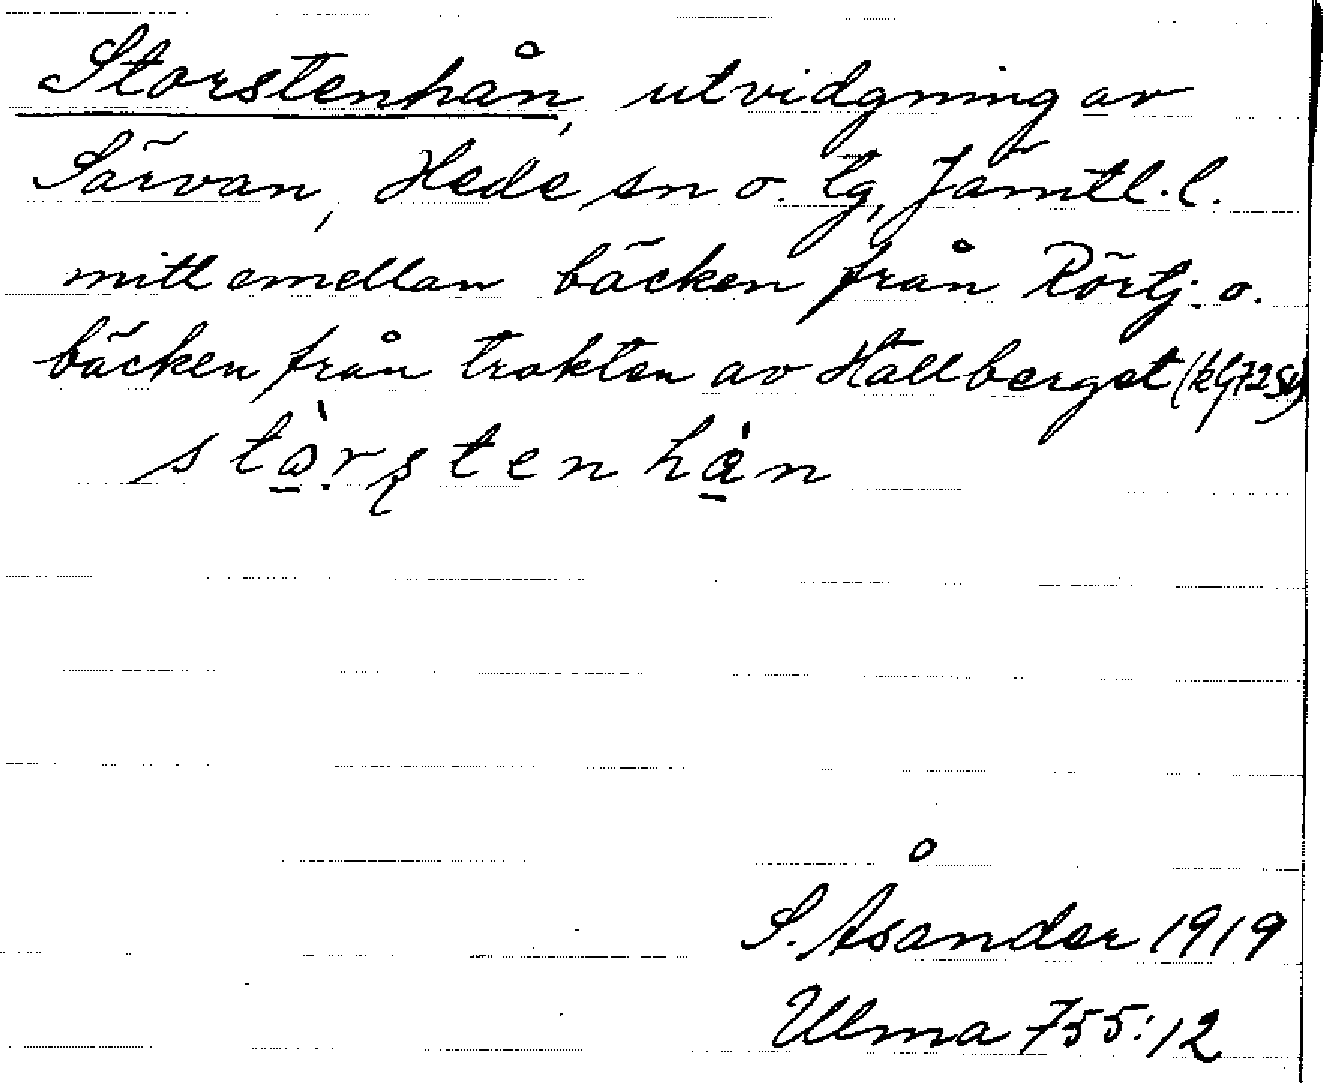 Storstenhån, utvidgning av
Särvan, Hede sn o. tg, Jämtl. l.
mitt emellan bäcken från Rörtj. o.
bäcken från trakten av Hallberget (kbl 72 SV)
stò̠r̥ştenhà̠n
S. Åsander 1919
Ulma 755:12